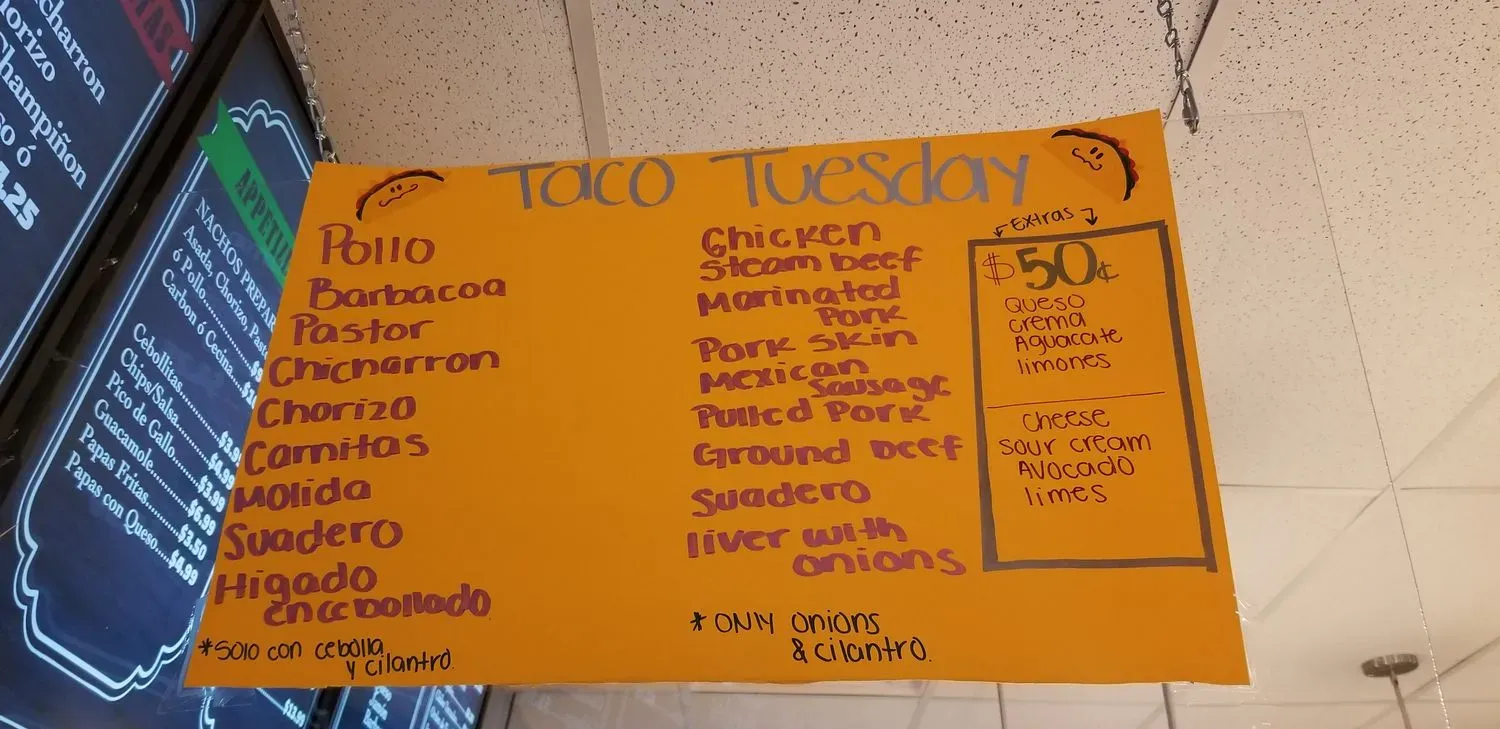 charron
horizo
Champiñon
so ó
4.25
APPETIZ
NACHOS PREPAR
Asada, Chorizo, Past
ó Pollo
Carbon ó Cecina
Cebollitas
Chips/Salsa
Pico de Gallo
Guacamole
Papas Fritas
Papas con Queso
$3.9
$4.99
$3.99
$6.99
$3.50
$4.99
Taco Tuesday
Pollo
Barbacoa
Pastor
Chicharron
Chorizo
Carnitas
Molida
Suadero
Higado
encebollado
*Solo con cebolla
y cilantro.
Chicken
Steam beef
Marinated
Pork
Pork skin
Mexican
Sausage
Pulled Pork
Ground beef
Suadero
liver with
onions
* ONly onions
& cilantro.
Extras
$50¢
Queso
crema
Aguacate
limones
Cheese
sour cream
Avocado
limes